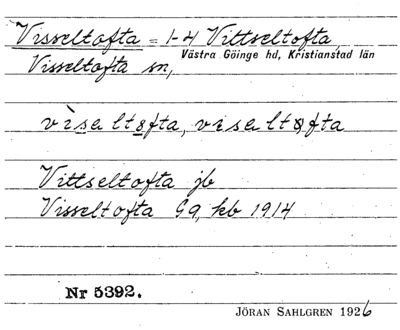 Visseltofta = 1-4 Vittseltofta,
Västra Göinge hd, Kristianstad län
Visseltofta sn,
visaltofta, visaltofta
Vittseltofta jb
Visseltofta Ga, kb 1914
Nr 5392.
JÖRAN SAHLGREN 1926